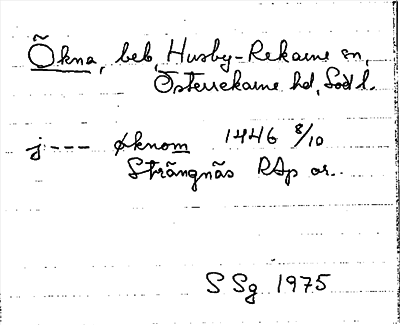 Ökna, beb, Husby-Rekarne sn,
Österrekarne hd, Söd l.
j--- øknom 1446 8/10
Strängnäs RAp or.
S Sg 1975